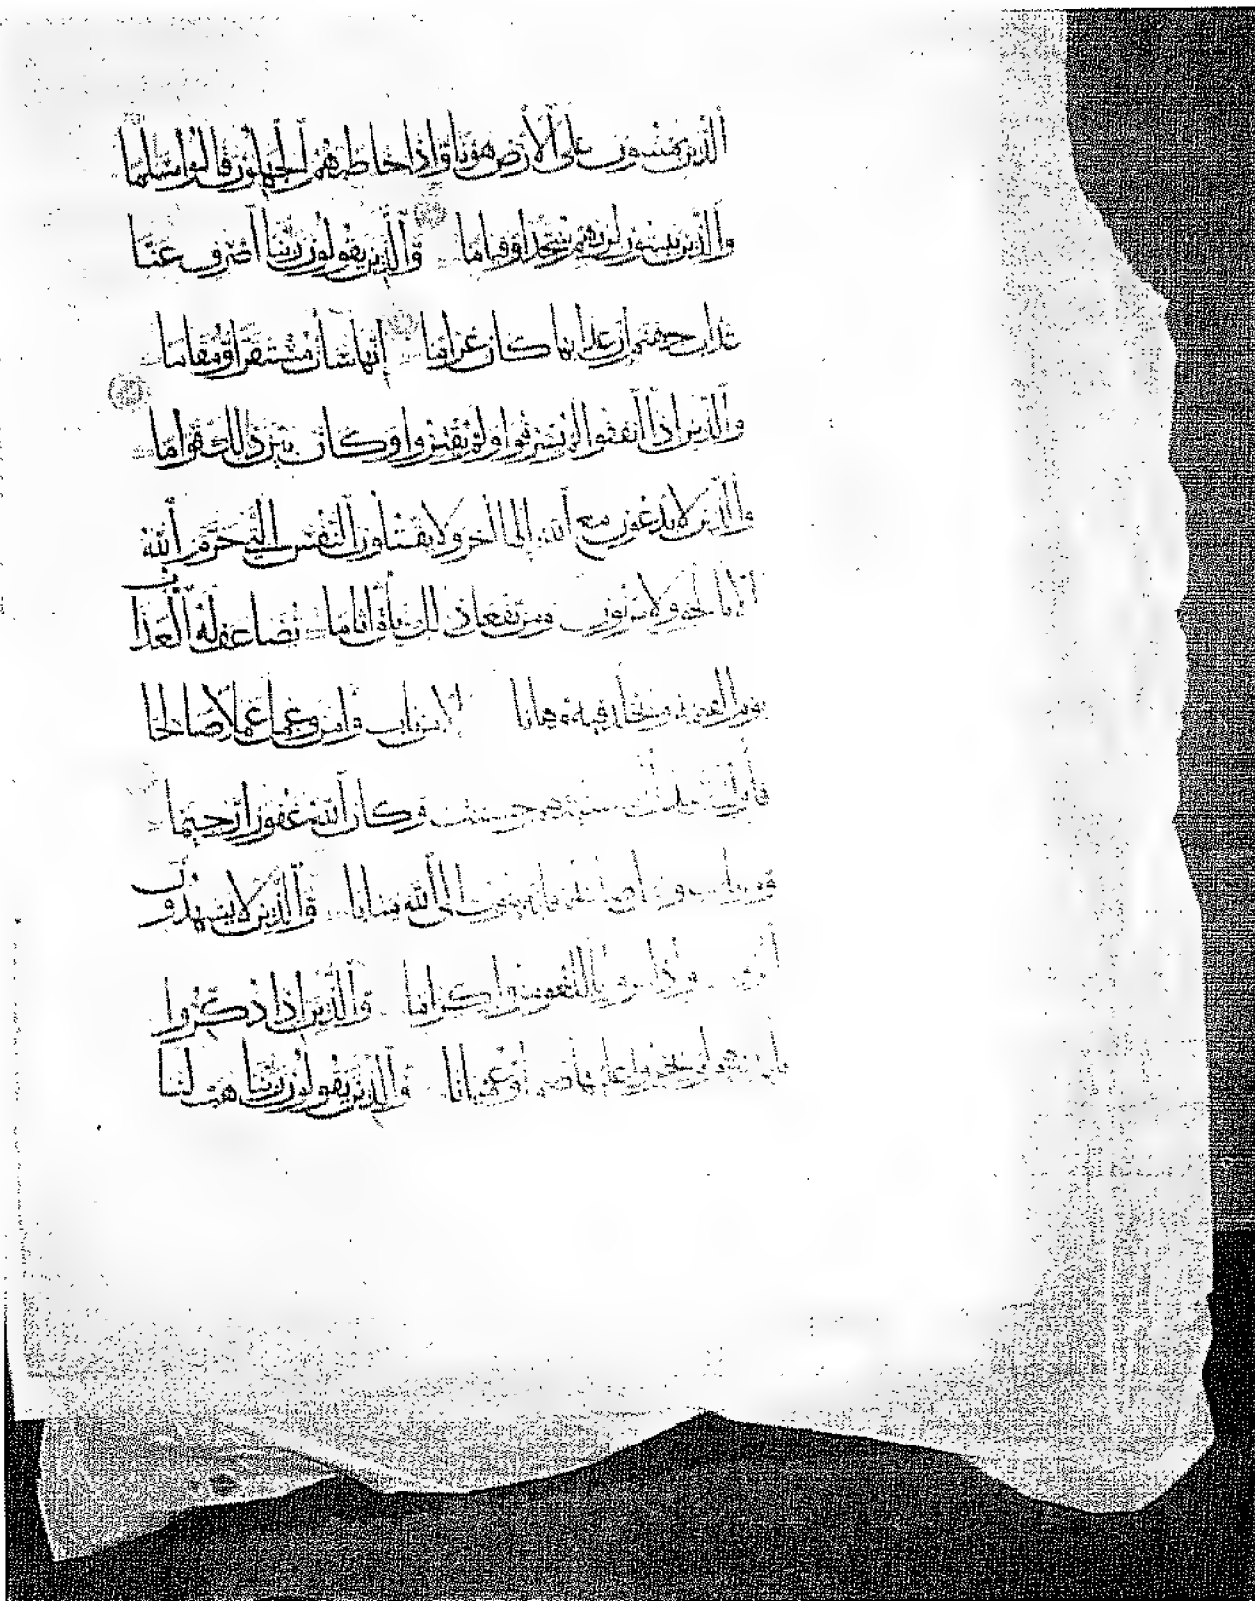 ٱلَّذِينَ يَمْشُونَ عَلَى ٱلْأَرْضِ هَوْنًا وَإِذَا خَاطَبَهُمُ ٱلْجَٰهِلُونَ قَالُوا۟ سَلَٰمًا
وَٱلَّذِينَ يَبِيتُونَ لِرَبِّهِمْ سُجَّدًا وَقِيَٰمًا وَٱلَّذِينَ يَقُولُونَ رَبَّنَا ٱصْرِفْ عَنَّا
عَذَابَ جَهَنَّمَ إِنَّ عَذَابَهَا كَانَ غَرَامًا إِنَّهَا سَآءَتْ مُسْتَقَرًّا وَمُقَامًا
وَٱلَّذِينَ إِذَآ أَنفَقُوا۟ لَمْ يُسْرِفُوا۟ وَلَمْ يَقْتُرُوا۟ وَكَانَ بَيْنَ ذَٰلِكَ قَوَامًا
وَٱلَّذِينَ لَا يَدْعُونَ مَعَ ٱللَّهِ إِلَٰهًا ءَاخَرَ وَلَا يَقْتُلُونَ ٱلنَّفْسَ ٱلَّتِى حَرَّمَ ٱللَّهُ
إِلَّا بِٱلْحَقِّ وَلَا يَزْنُونَ وَمَن يَفْعَلْ ذَٰلِكَ يَلْقَ أَثَامًا يُضَاعَفْ لَهُ ٱلْعَذَابُ
يَوْمَ ٱلْقِيَٰمَةِ وَيَخْلُدْ فِيهِ مُهَانًا إِلَّا مَن تَابَ وَءَامَنَ وَعَمِلَ عَمَلًا صَالِحًا
فَأُو۟لَٰٓئِكَ يُبَدِّلُ ٱللَّهُ سَيِّـَٔاتِهِمْ حَسَنَٰتٍ وَكَانَ ٱللَّهُ غَفُورًا رَّحِيمًا
وَمَن تَابَ وَعَمِلَ صَالِحًا فَإِنَّهُ يَتُوبُ إِلَى ٱللَّهِ مَتَابًا وَٱلَّذِينَ لَا يَشْهَدُونَ
ٱلزُّورَ وَإِذَا مَرُّوا۟ بِٱللَّغْوِ مَرُّوا۟ كِرَامًا وَٱلَّذِينَ إِذَا ذُكِّرُوا۟
بِـَٔايَٰتِ رَبِّهِمْ لَمْ يَخِرُّوا۟ عَلَيْهَا صُمًّا وَعُمْيَانًا وَٱلَّذِينَ يَقُولُونَ رَبَّنَا هَبْ لَنَا